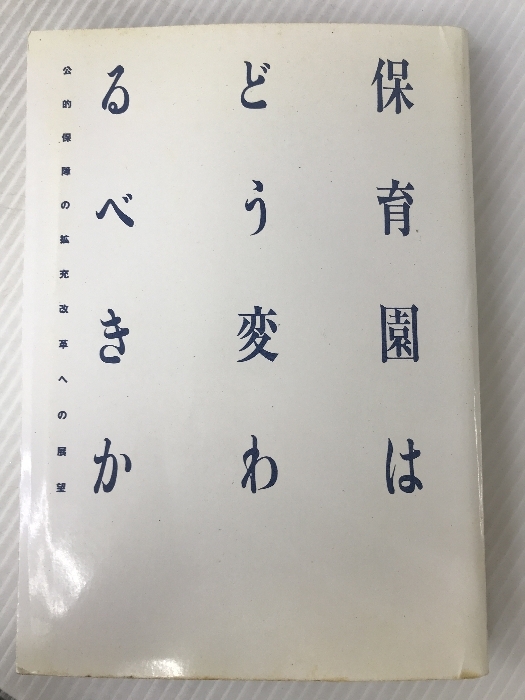 保育園は
どう変わ
るべきか
公的保障の拡充改革への展望